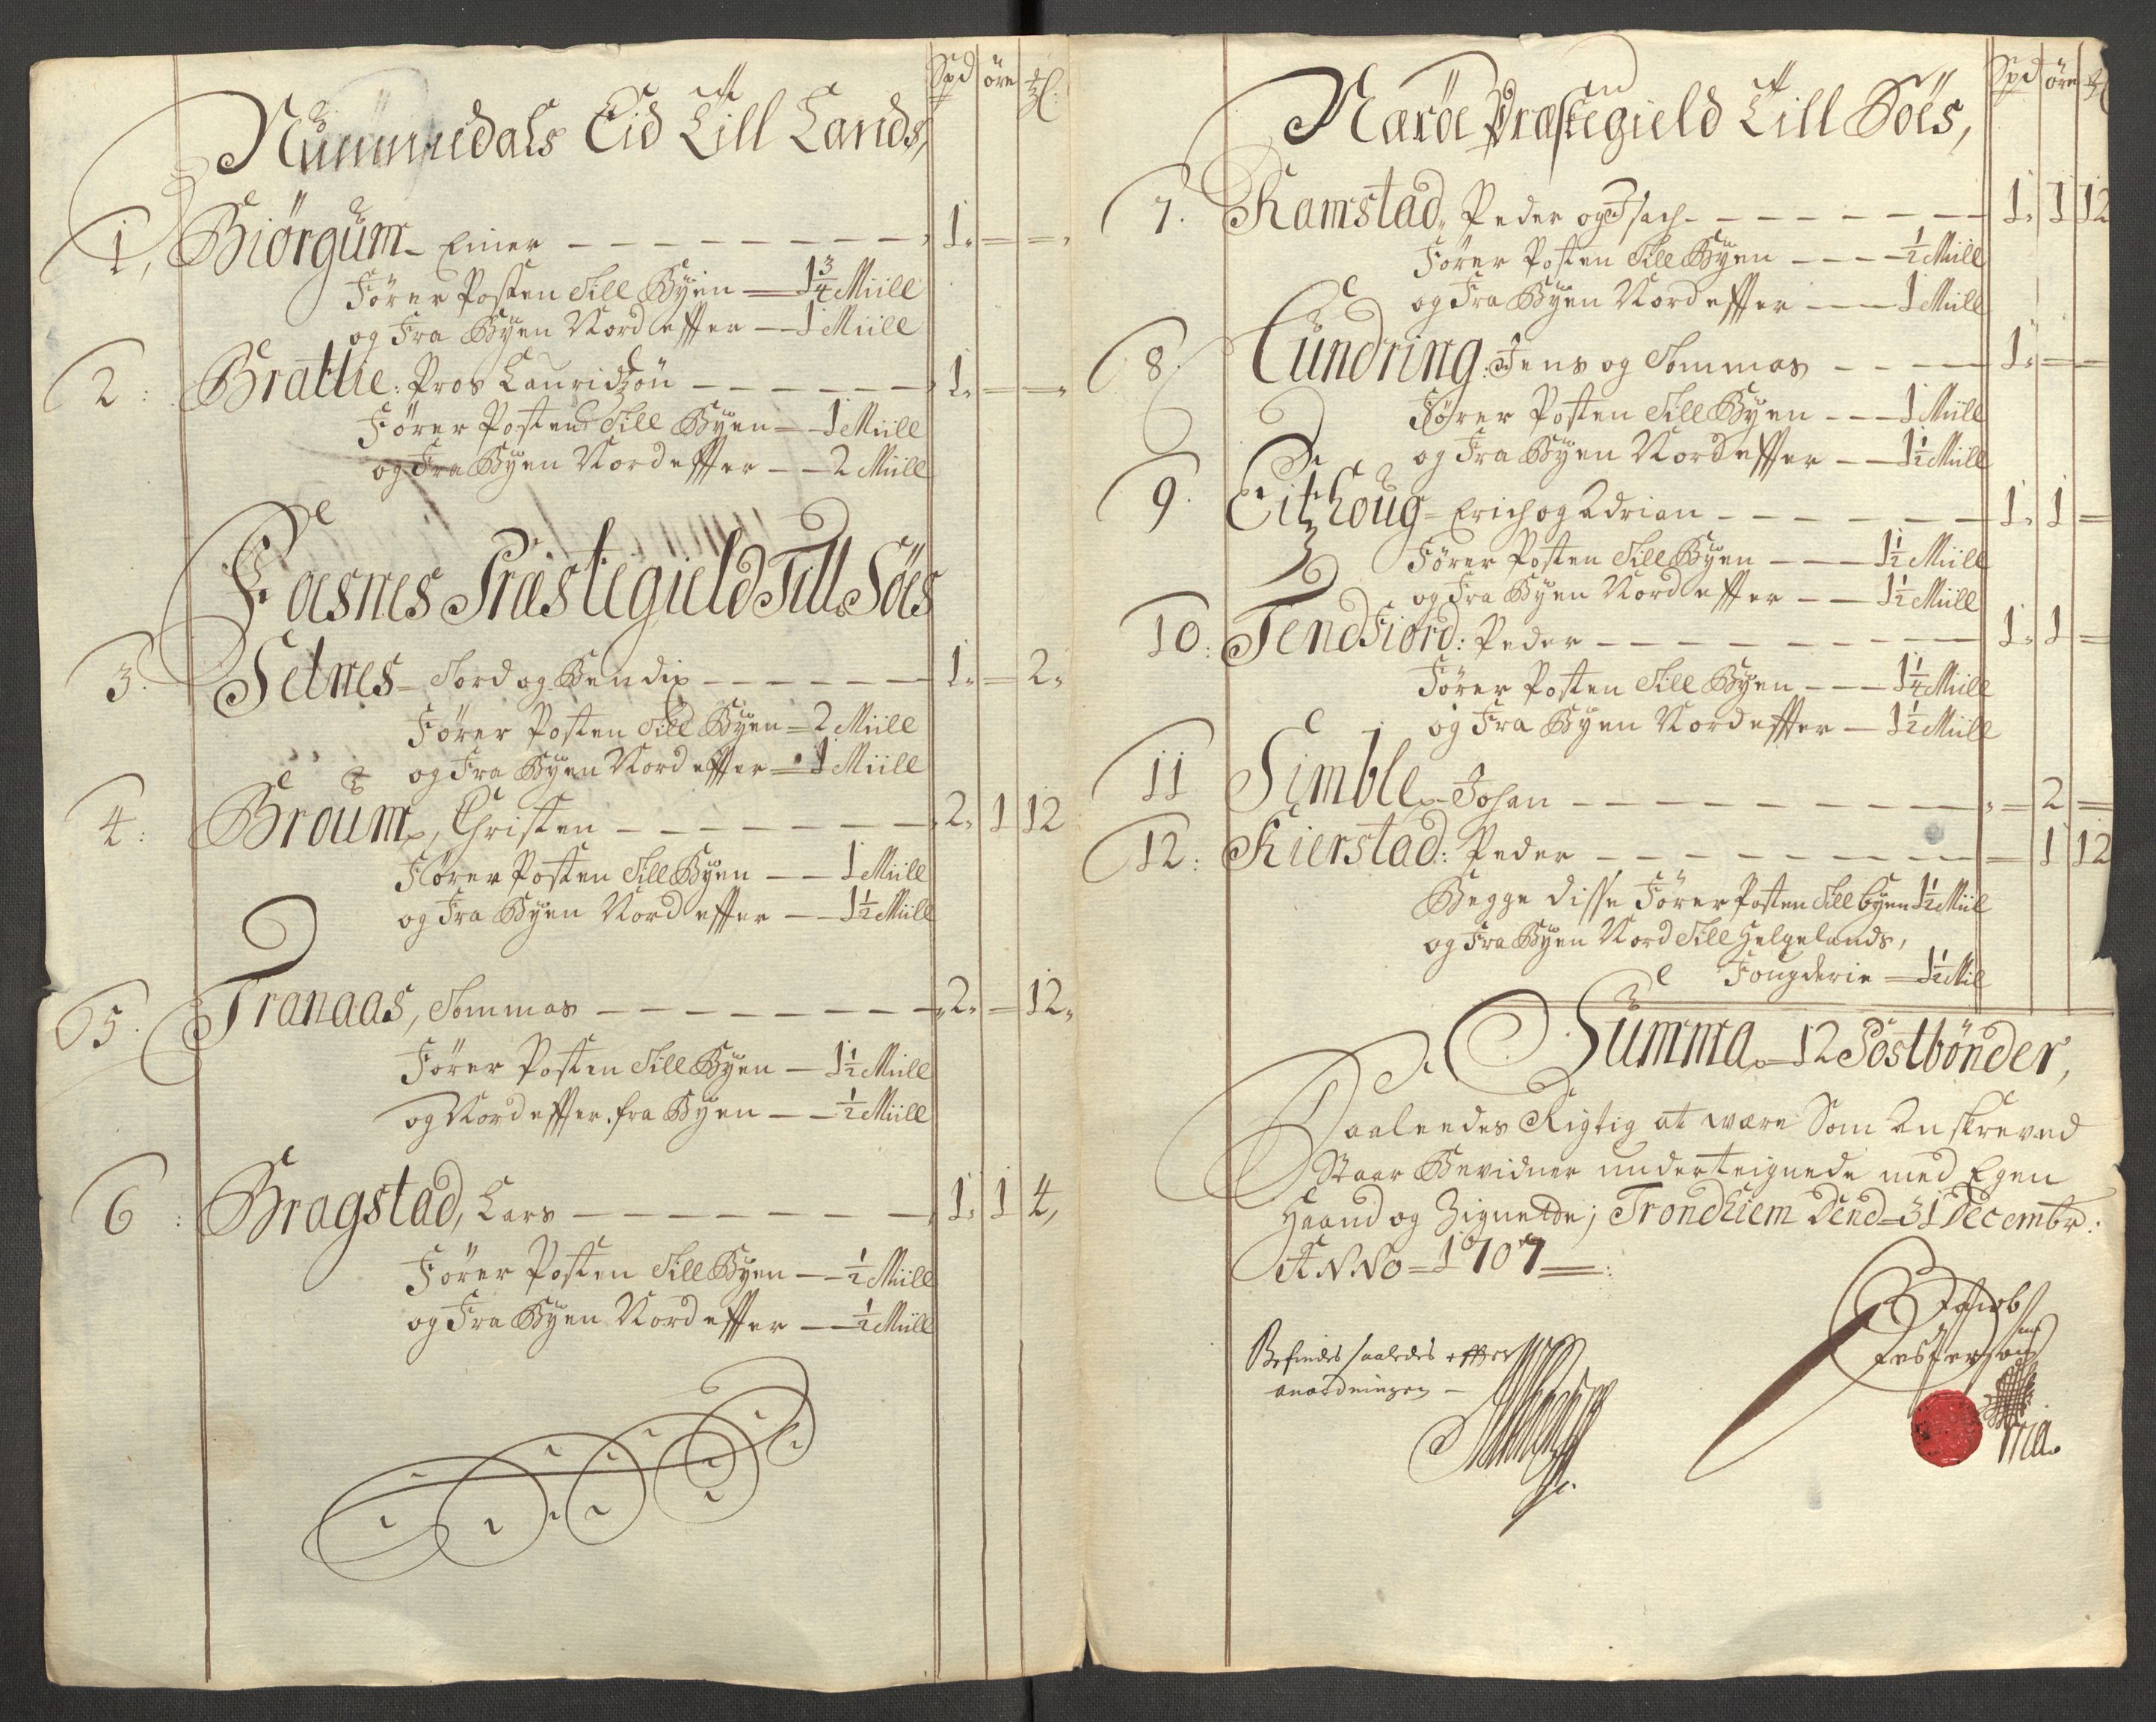 Spd øre
Nummedals Eid Till Lands,
1, Biørgum Einer — 1. = =
Fører Posten Till Byen — 1 3/4 Miill
og Fra Byen Nord effter — 1 Miill
2: Brattlie: Pros Lauridzøn — 1. = =
Fører Posten Till Byen — 1 Miill
og Fra Byen Nord effter — 2 Miill
Foesnes Præstegield Till Søes
3. Setnes Tord og Bendix — 1. = 2.
Fører Posten Till Byen = 2 Miill
og Fra Byen Nord effter = 1 Miill
4: Broum, Christen — 2. 1 12
Fører Posten Till Byen — 1 Miill
og Fra Byen Nord effter — 1 1/2 Miill
5. Tranaas, Tommas — 2. = 12.
Fører Posten Till Byen — 1 1/2 Miill
og Nord effter fra Byen — 1/2 Miill
6: Bragstad, Lars — 1. 1 4,
Fører Posten Till Byen — 1/2 Miill
og Fra Byen Nord effter — 1/2 Miill
Spd øre
Nærøe Præstegield Till Søes,
7. Ramstad, Peder og Isach — 1. 1 12
Fører Posten Till Byen — 1/2 Miill
og Fra Byen Nord effter — 1 Miill
8. Lundring: Jens og Tommas — 1. = =
Fører Posten Till Byen — 1 Miill
og Fra Byen Nord effter — 1 1/2 Miill
9. Eithoug = Erich og Adrian — 1. 1 =
Fører Posten Till Byen — 1 1/2 Miill
og Fra Byen Nord effter — 1 1/2 Miill
10: Tendfiord: Peder — 1. 1 =
Fører Posten Till Byen — 1 1/4 Miill
og Fra Byen Nord effter — 1 1/2 Miill
11 Simble Johan — = 2 =
12: Kierstad: Peder — = 1 12
Begge disse Fører Posten Till byen 1 1/2 Miil
og Fra Byen Nord Till Helgelands,
Fougderie = 1 1/2 Mil
Summa = 12 Postbønder,
Saaleedes Rigtig at være Som Anskreved
Staar Bevidner underteignede med Egen
Haand og Zignette; Trondhiem Dend = 31 Decembr:
ANNo = 1707 =:
Befindes saaledes effter
anordningen —
Jacob
Jespersøn
ma.